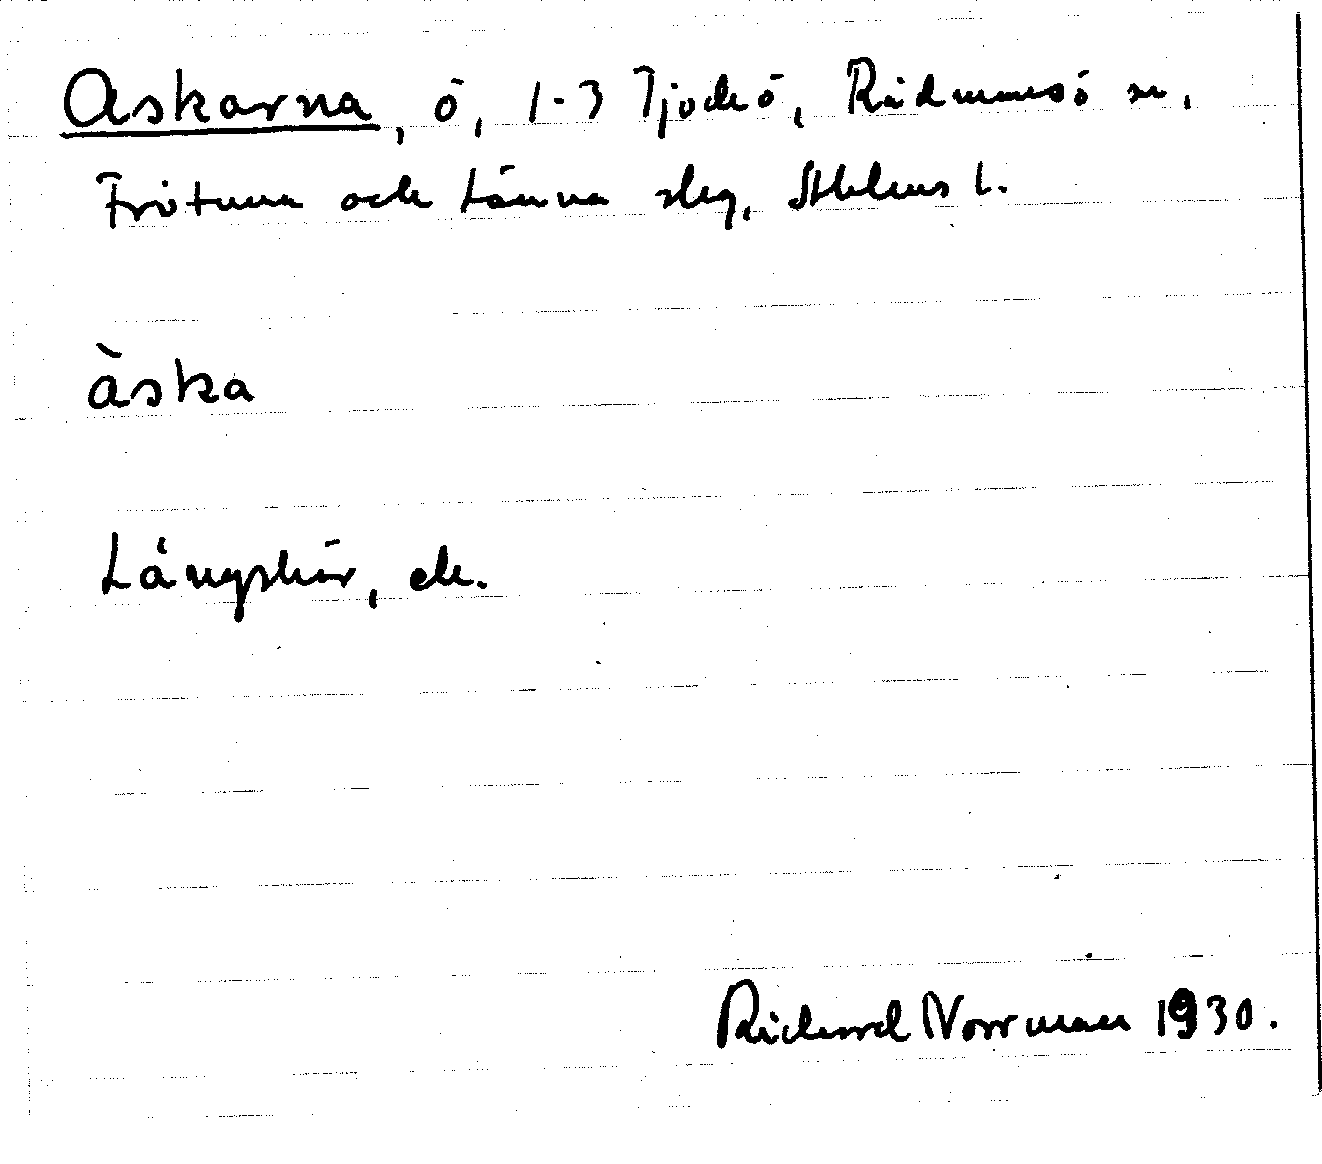 Askarna, ö, 1-3 Tjockö, Rådmansö sn,
Frötuna och Länna slg, Sthlms l.
àska
Långskär, ek.
Richard Norrman 1930.